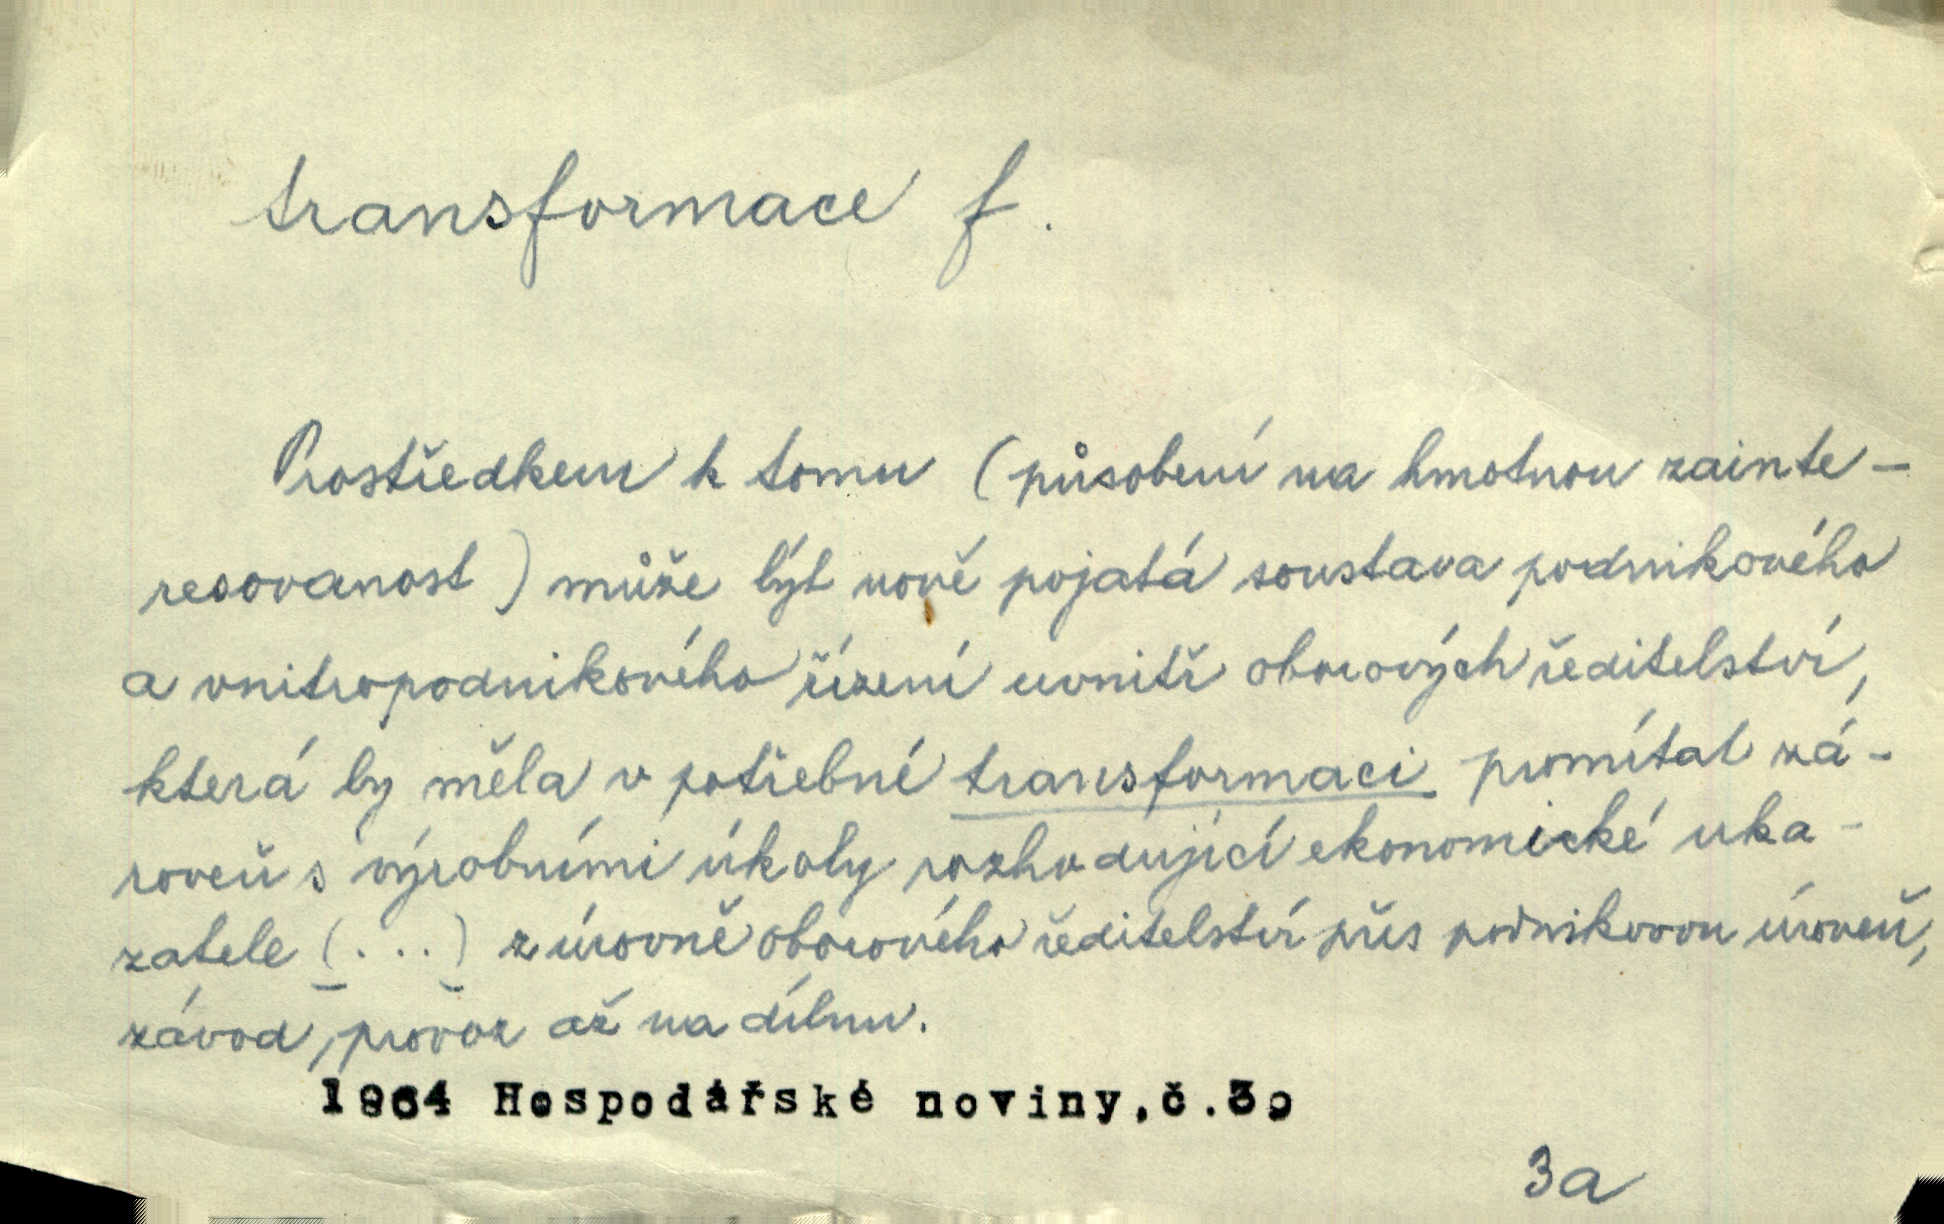 transformace f.
Prostředkem k tomu (působení na hmotnou zainte-
resovanost) může být nově pojatá soustava podnikového
a vnitropodnikového řízení uvnitř oborových ředitelství,
která by měla v potřebné transformaci promítat zá-
roveň s výrobními úkoly rozhodující ekonomické uka-
zatele (...) z úrovně oborového ředitelství přes podnikovou úroveň,
závod, provoz až na dílnu.
1964 Hospodářské noviny,č.
3a